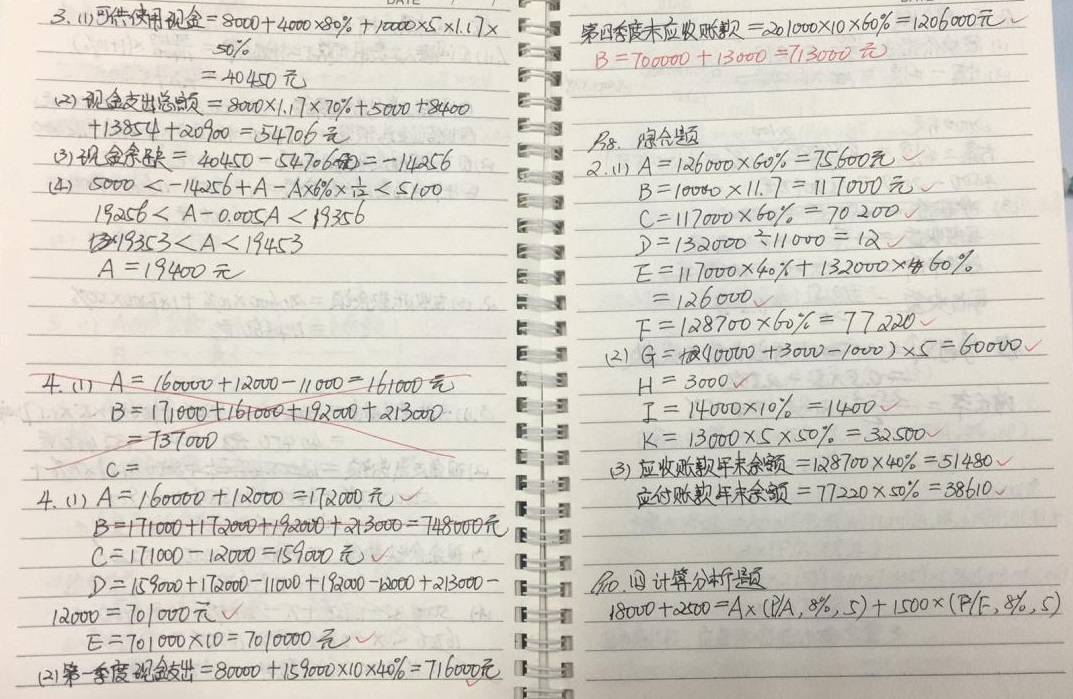 3. (1) 可供使用现金 = 8000 + 4000×80% + 10000×5×1.17×
50%
= 40450 元
(2) 现金支出总额 = 8000×1.17×70% + 5000 + 8400
+ 13854 + 20900 = 54706 元
(3) 现金余缺 = 40450 - 54706 = -14256
(4) 5000 < -14256 + A - A×6%×1/12 < 5100
19256 < A - 0.005A < 19356
19353 < A < 19453
A = 19400 元
4. (1) A = 160000 + 12000 - 11000 = 161000 元
B = 171000 + 161000 + 192000 + 213000
= 737000
C =
4. (1) A = 160000 + 12000 = 172000 元
B = 171000 + 172000 + 192000 + 213000 = 748000 元
C = 171000 - 12000 = 159000 元
D = 159000 + 172000 - 11000 + 192000 - 12000 + 213000 -
12000 = 701000 元
E = 701000 × 10 = 7010000 元
(2) 第一季度现金支出 = 80000 + 159000×10×40% = 716000元
第四季度末应收账款 = 201000×10×60% = 1206000元
B = 700000 + 13000 = 713000 元
P8. 综合题
2. (1) A = 126000×60% = 75600元
B = 10000 × 11.7 = 117000 元
C = 117000×60% = 70200
D = 132000 ÷ 11000 = 12
E = 117000×40% + 132000×60%
= 126000
F = 128700×60% = 77220
(2) G = (10000 + 3000 - 1000) × 5 = 60000
H = 3000
I = 14000×10% = 1400
K = 13000 × 5 × 50% = 32500
(3) 应收账款年末余额 = 128700×40% = 51480
应付账款年末余额 = 77220×50% = 38610
P10. 四 计算分析题
18000 + 2500 = A×(P/A, 8%, 5) + 1500×(P/F, 8%, 5)